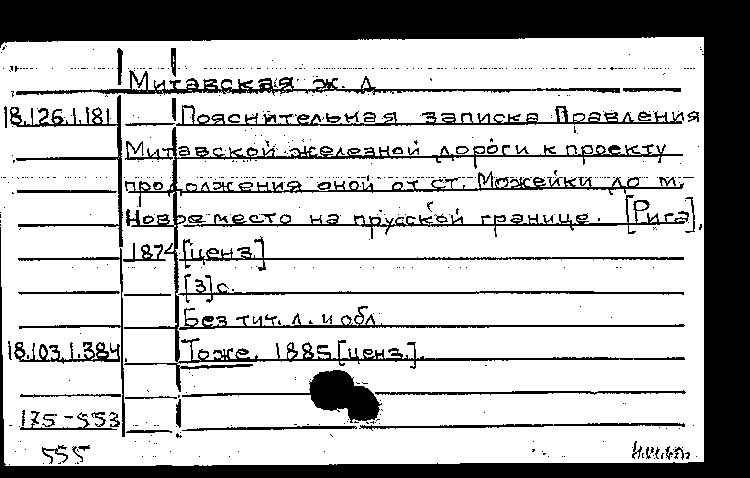 Митавская ж. д
18.126.1.181 Пояснительная записка Правления
Митавской железной дороги к проекту
продолжения оной от ст. Можейки до м.
Новое место на прусской границе. [Рига],
1874 [ценз]
[3]с.
Без тит. л. и обл.
18.103.1.384 Тоже. 1885 [ценз.].
175-553
555